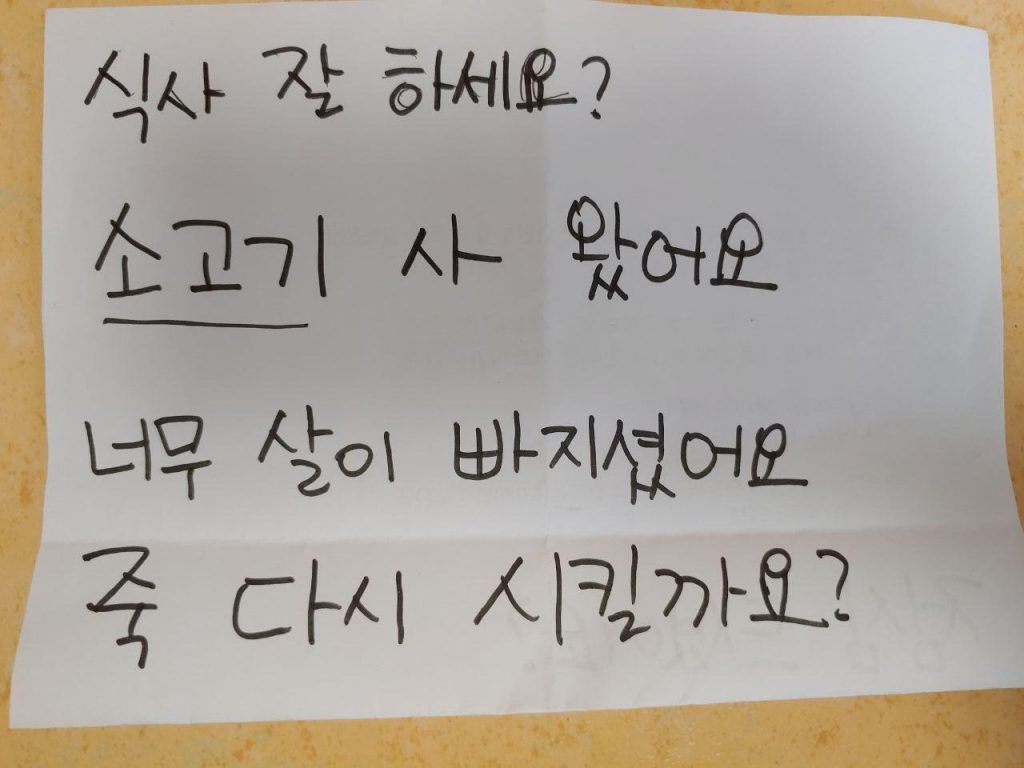 식사 잘 하세요?
소고기 사 왔어요
너무 살이 빠지셨어요
죽 다시 시킬까요?